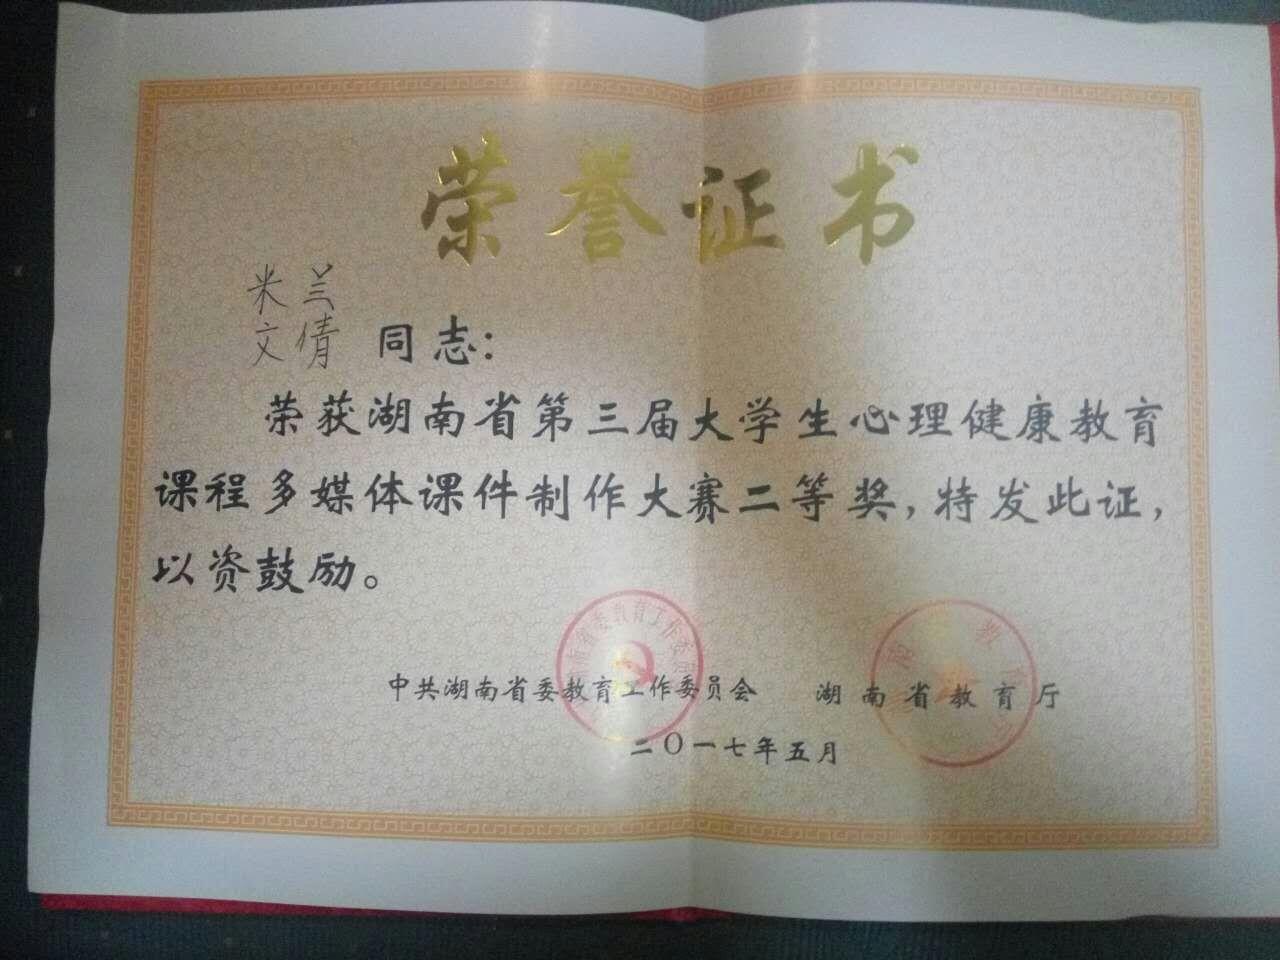 荣誉证书
米兰
文倩 同志：
荣获湖南省第三届大学生心理健康教育
课程多媒体课件制作大赛二等奖，特发此证，
以资鼓励。
中共湖南省委教育工作委员会 湖南省教育厅
二〇一七年五月